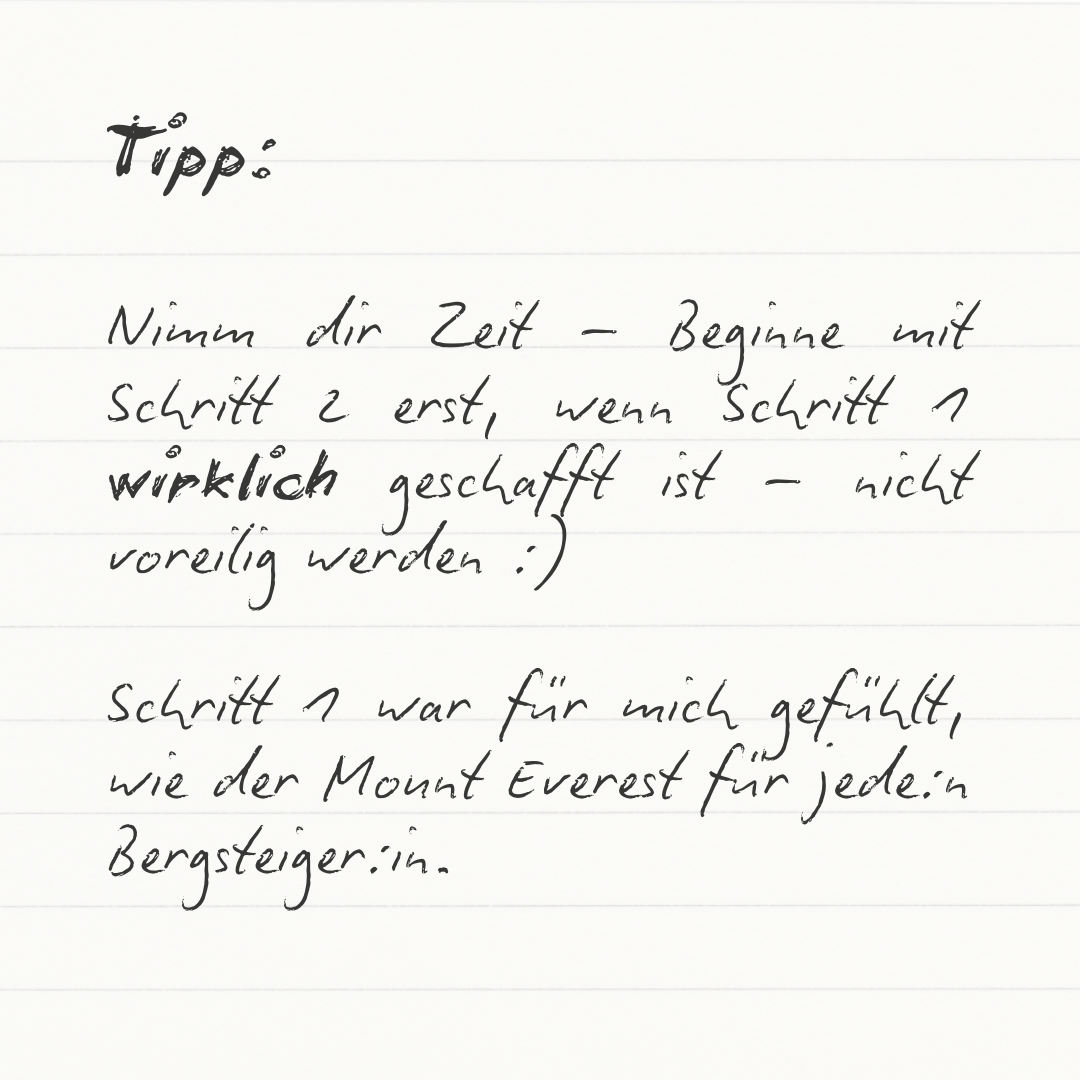 Tipp:
Nimm dir Zeit – Beginne mit
Schritt 2 erst, wenn Schritt 1
wirklich geschafft ist – nicht
voreilig werden :)
Schritt 1 war für mich gefühlt,
wie der Mount Everest für jede:n
Bergsteiger:in.